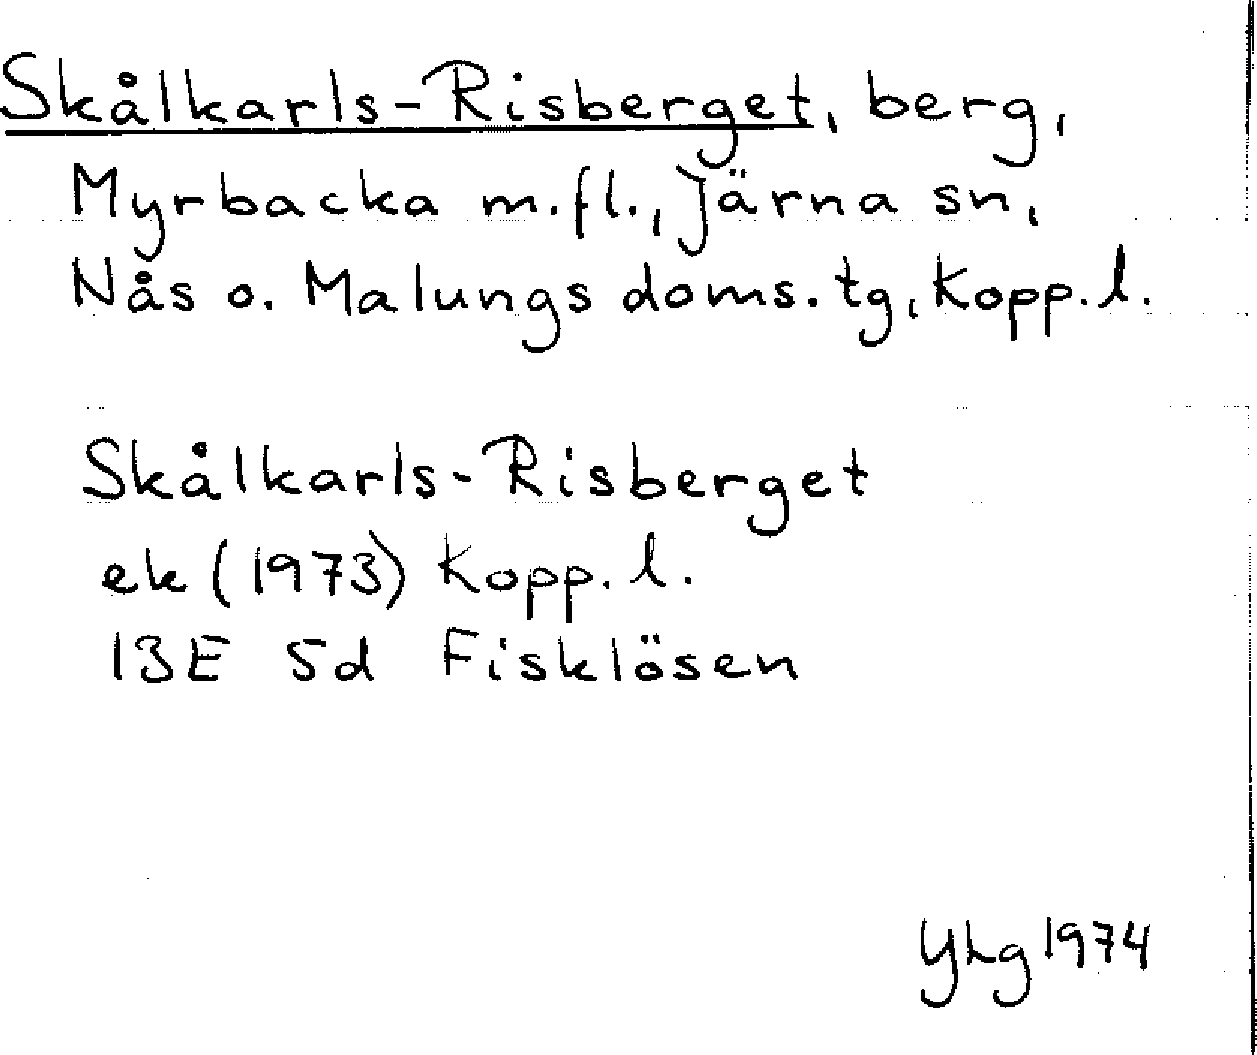 Skålkarls-Risberget, berg,
Myrbacka m.fl., Järna sn,
Nås o. Malungs doms. tg, Kopp. l.
Skålkarls-Risberget
ek (1973) Kopp. l.
13E 5d Fisklösen
YLg 1974